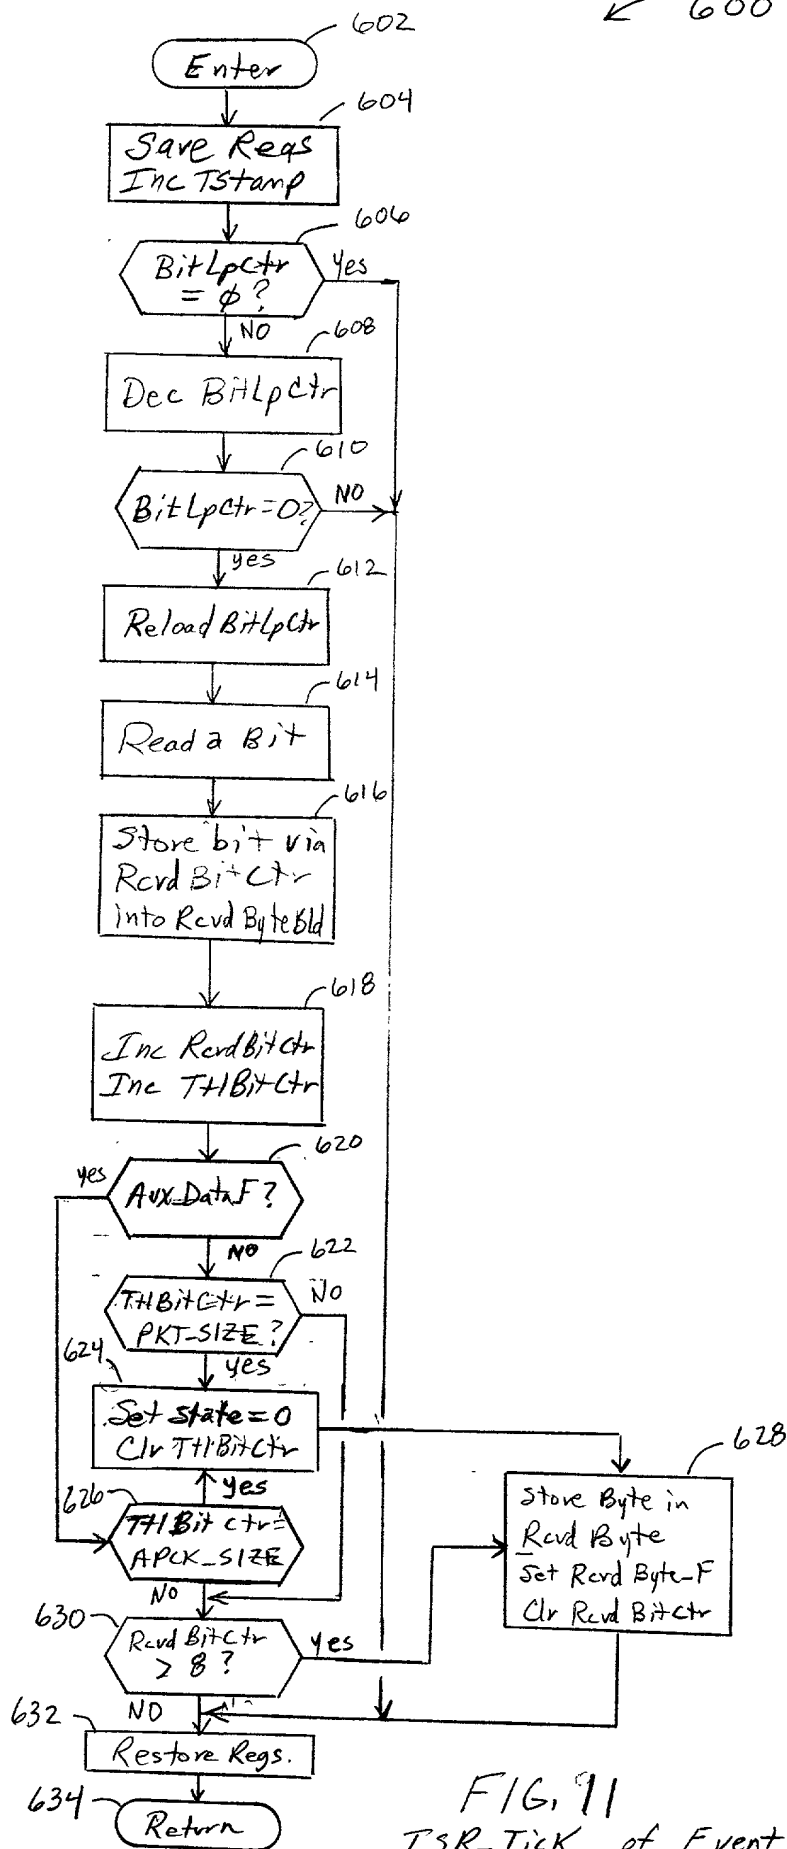 600
602
Enter
604
Save Regs
Inc TStamp
606
BitLpCtr
= ø?
Yes
NO
608
Dec BitLpCtr
610
BitLpCtr=0?
NO
yes
612
Reload BitLpCtr
614
Read a Bit
616
Store bit via
Rcvd BitCtr
into Rcvd ByteBld
618
Inc RcvdBitCtr
Inc TtlBitCtr
620
yes
Aux_DataF?
NO
622
TtlBitCtr=
PKT_SIZE?
NO
624
yes
Set state=0
Clr TtlBitCtr
628
626
yes
TtlBitCtr=
APCK_SIZE
Store Byte in
Rcvd Byte
Set Rcvd Byte_F
Clr Rcvd BitCtr
NO
630
Rcvd BitCtr
> 8?
yes
NO
632
Restore Regs.
634
Return
FIG. 11
ISR_Tick of Event